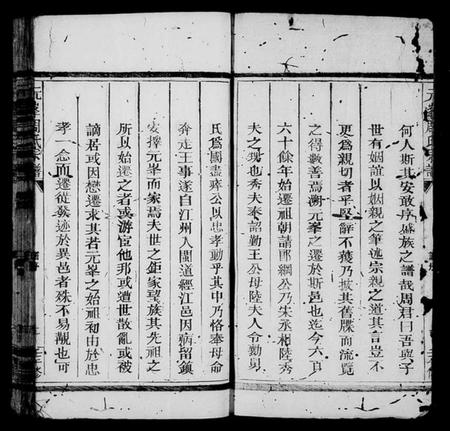 何人斯其安敢弁盛族之譜哉周君曰吾與子
世有姻誼以姻親之筆述宗親之道其言豈不
更為親切者乎堅辭不獲乃披其舊牒而流覽
之得數善焉溯元峯之遷於斯邑也迄今六百
六十餘年始遷祖朝請郎綱公乃朱丞相陸秀
夫之甥也秀夫奉詔勤王公母陸夫人令勷舅
氏為國盡瘁公以忠孝動乎其中乃恪奉母命
奔走王事遂自江州入閩道經江邑因病留鎮
爰擇元峯而家焉夫世之鉅家望族其先祖之
所以始遷之者或游宦他邦或遭世散亂或被
謫居或因戀遷求其者元峯之始祖和由於忠
孝一念而遷徙發迹於異邑者殊不易覯也可
元峯周氏宗譜